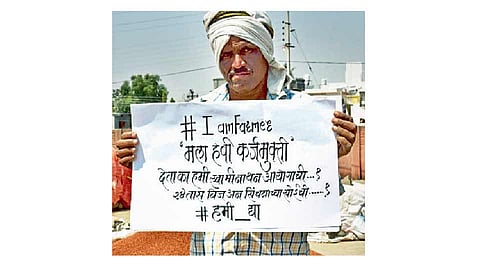 # I am Farmer
'मला हवी कर्जमुक्ती'
देता का हमी स्वामीनाथन आयोगाची...?
२४ तास विज अन पिण्याच्या पाण्याची.....?
# हमी_द्या